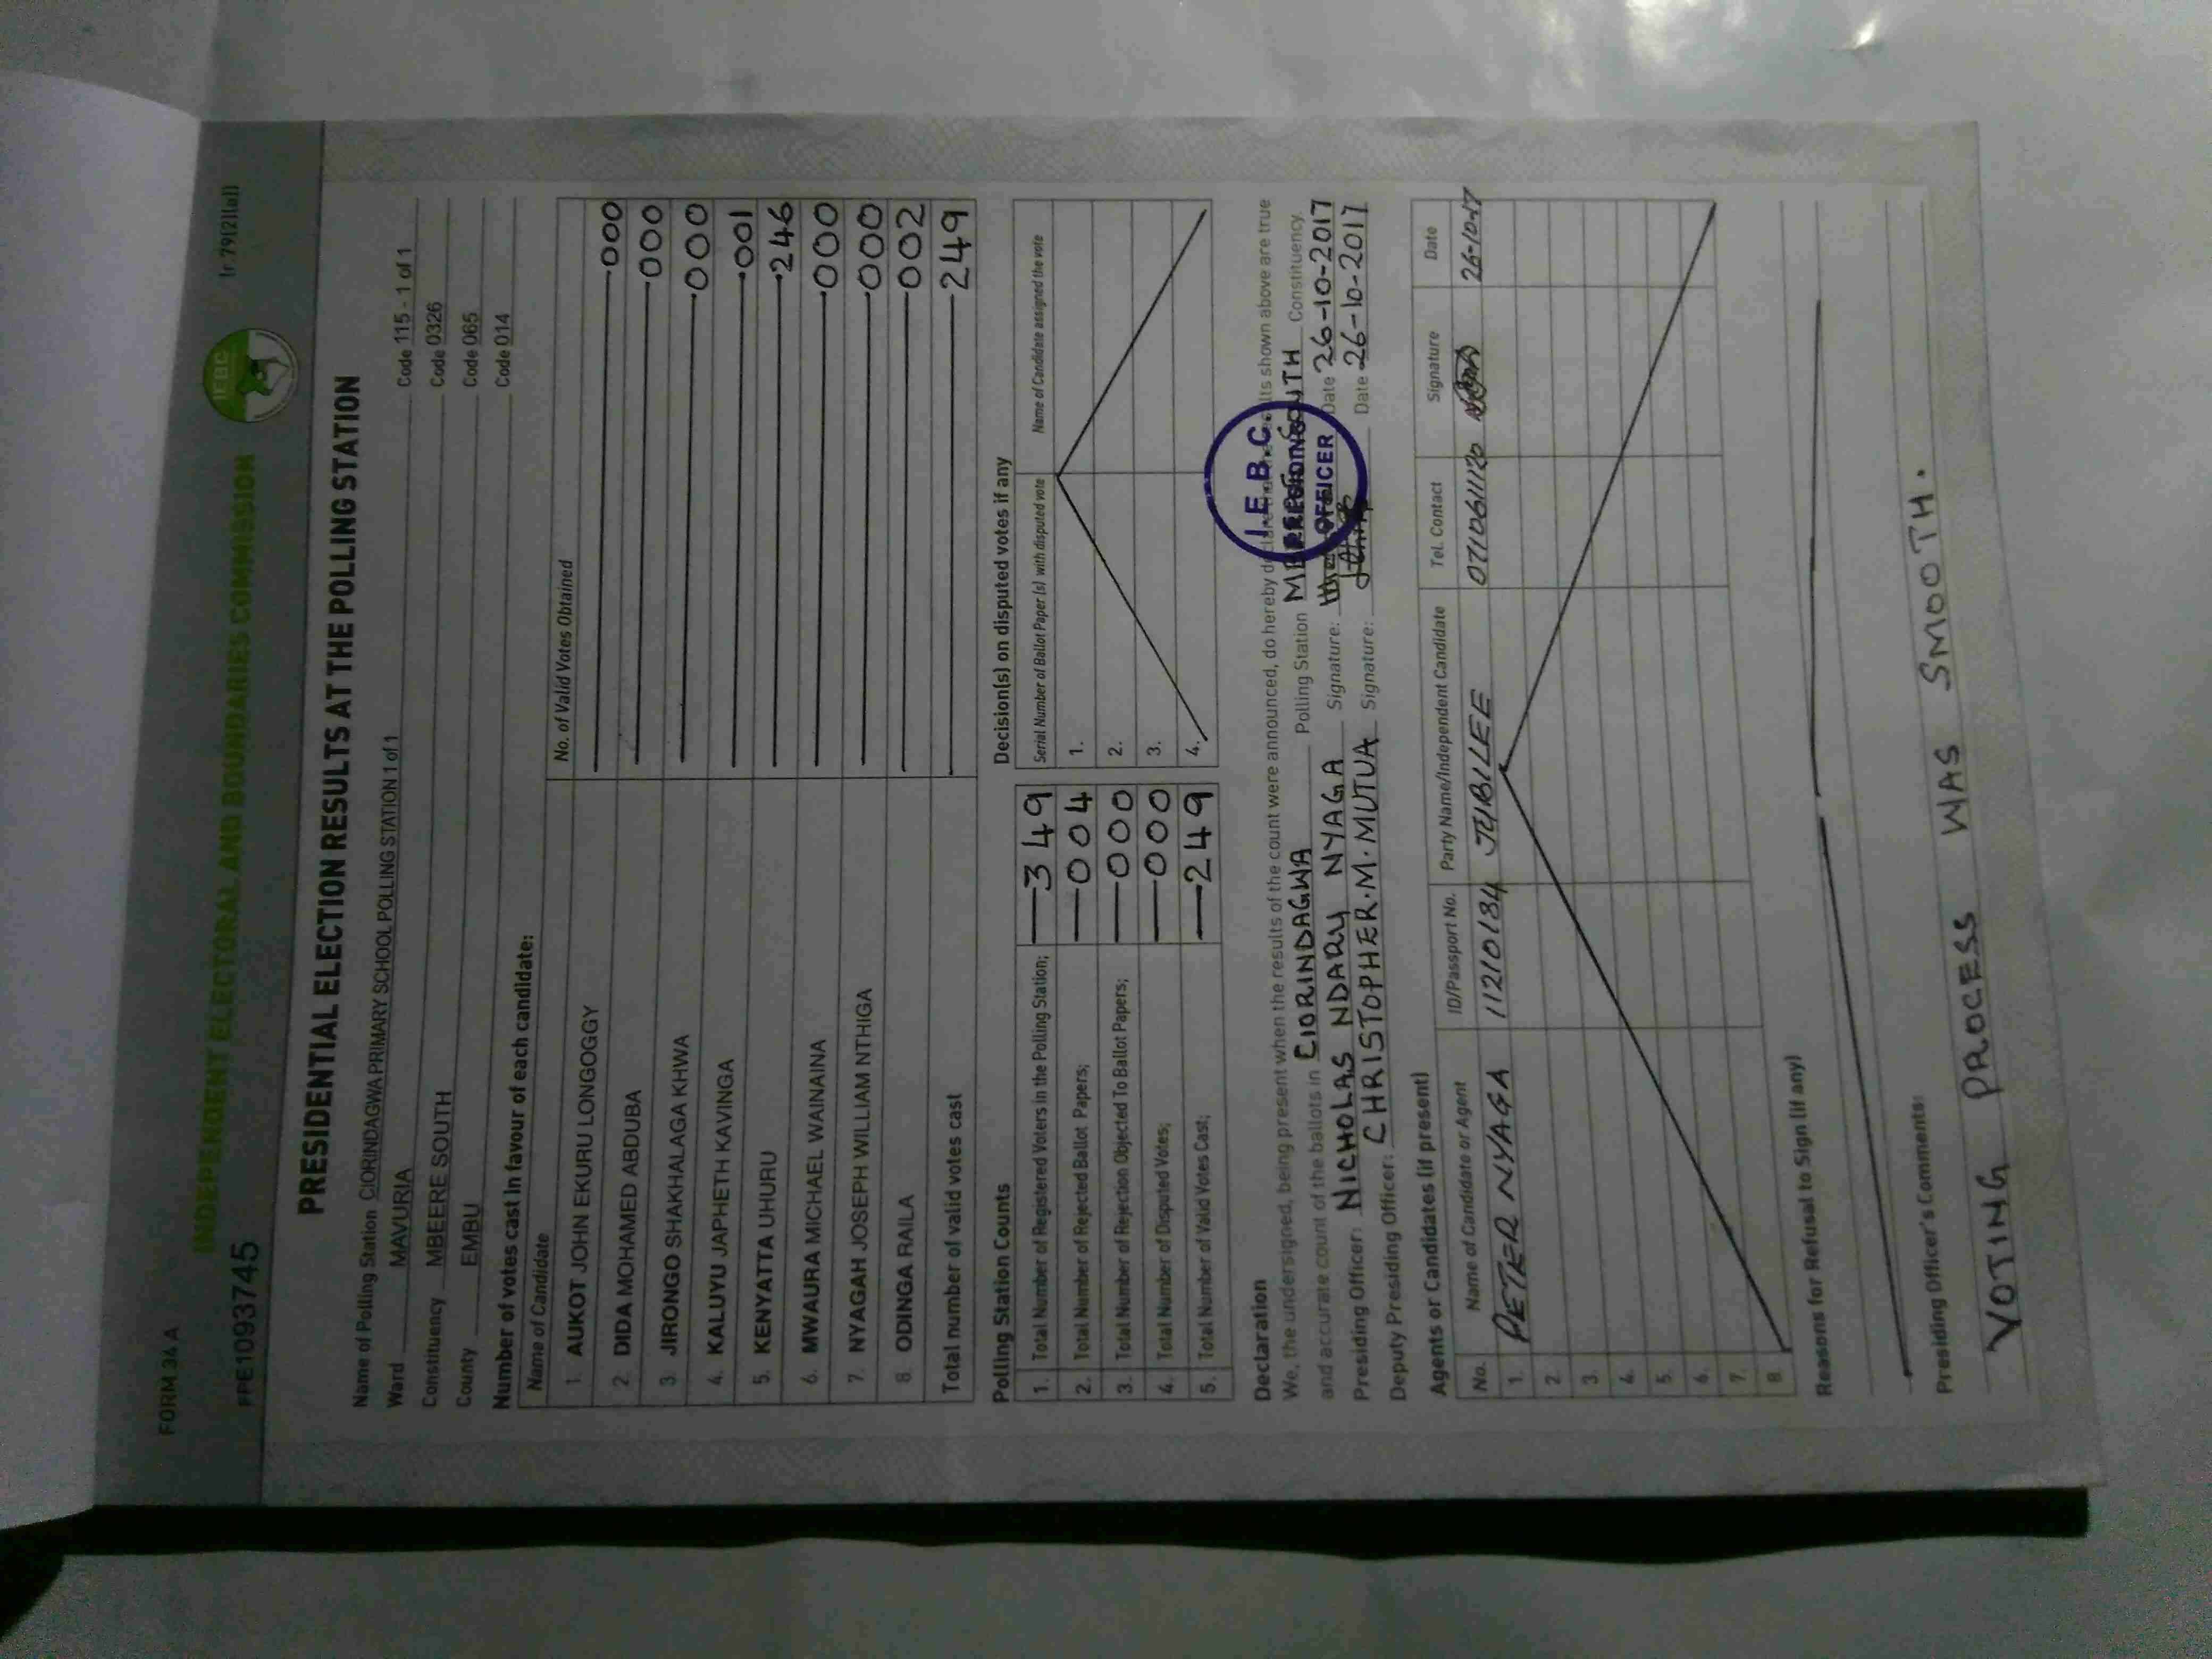 FORM 34 A
(r.79(2)(a))
INDEPENDENT ELECTORAL AND BOUNDARIES COMMISSION
IEBC
PRE1093745
PRESIDENTIAL ELECTION RESULTS AT THE POLLING STATION
Name of Polling Station CIORINDAGWA PRIMARY SCHOOL POLLING STATION 1 of 1 Code 115 - 1 of 1
Ward MAVURIA Code 0326
Constituency MBEERE SOUTH Code 065
County EMBU Code 014
Number of votes cast in favour of each candidate:
Name of Candidate No. of Valid Votes Obtained
1. AUKOT JOHN EKURU LONGOGGY 000
2. DIDA MOHAMED ABDUBA 000
3. JIRONGO SHAKHALAGA KHWA 000
4. KALUYU JAPHETH KAVINGA 001
5. KENYATTA UHURU 246
6. MWAURA MICHAEL WAINAINA 000
7. NYAGAH JOSEPH WILLIAM NTHIGA 000
8. ODINGA RAILA 002
Total number of valid votes cast 249
Polling Station Counts
1. Total Number of Registered Voters in the Polling Station; 349
2. Total Number of Rejected Ballot Papers; 004
3. Total Number of Rejection Objected To Ballot Papers; 000
4. Total Number of Disputed Votes; 000
5. Total Number of Valid Votes Cast; 249
Decision(s) on disputed votes if any
Serial Number of Ballot Paper (s) with disputed vote Name of Candidate assigned the vote
1.
2.
3.
4.
Declaration
We, the undersigned, being present when the results of the count were announced, do hereby declare that the results shown above are true
and accurate count of the ballots in CIORINDAGWA Polling Station MBEERE SOUTH Constituency.
Presiding Officer: NICHOLAS NDARU NYAGA Signature: Date 26-10-2017
Deputy Presiding Officer: CHRISTOPHER.M.MUTUA Signature: Date 26-10-2017
I.E.B.C
PRESIDING
OFFICER
Agents or Candidates (if present)
No. Name of Candidate or Agent ID/Passport No. Party Name/Independent Candidate Tel. Contact Signature Date
1. PETER NYAGA 11210184 JUBILEE 0710611120 26-10-17
2.
3.
4.
5.
6.
7.
8.
Reasons for Refusal to Sign (if any)
Presiding Officer's Comments:
VOTING PROCESS WAS SMOOTH.